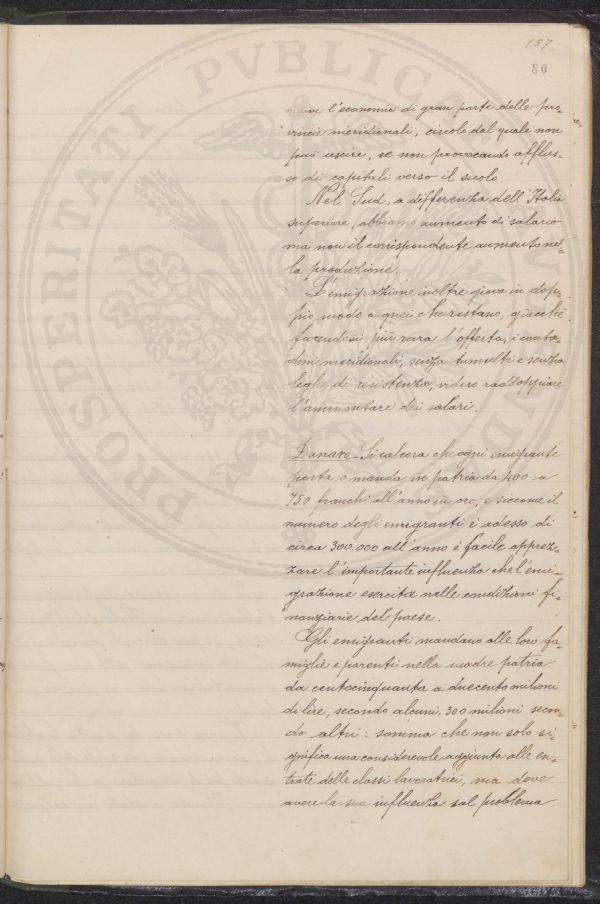 157
80
muove l'economia di gran parte delle pro-
vincie meridionali, circolo dal quale non
può uscire, se non provocando afflus-
so di capitali verso il suolo
Nel Sud, a differenza dell'Italia
superiore, abbiamo aumento di salario
ma non il corrispondente aumento nel-
la produzione.
L'emigrazione inoltre giova in dop-
pio modo a quei che restano, giacchè
facendosi più rara l'offerta, i conta-
dini meridionali, senza tumulti e senza
leghe di resistenza, videro raddoppiare
l'ammontare dei salari.
Danaro - Si calcora che ogni emigrante
porta o manda in patria da 400 a
750 franchi all'anno in oro, e siccome il
numero degli emigranti è adesso di
circa 300.000 all'anno è facile apprez-
zare l'importante influenza che l'emi-
grazione esercita nelle condizioni fi-
nanziarie del paese.
Gli emigranti mandano alle loro fa-
miglie e parenti nella madre patria
da centocinquanta a duecento milioni
di lire, secondo alcuni, 300 milioni secon-
do altri: somma che non solo si
gnifica una considerevole aggiunta alle en-
trate delle classi lavoratrici, ma deve
avere la sua influenza sul problema
PROSPERITATI PVBLICAE